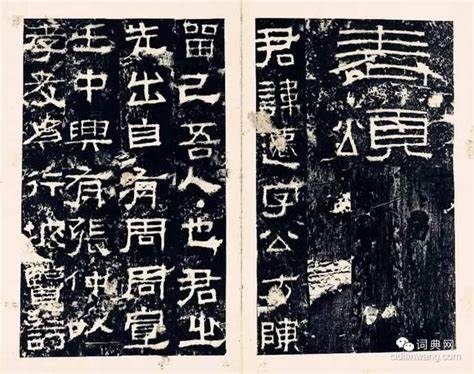 表頌
君諱遷字公方陳
留己吾人也君之
先出自有周周宣
王中興有張仲以
孝友為行披覽詩
词典网
cidianwang.com